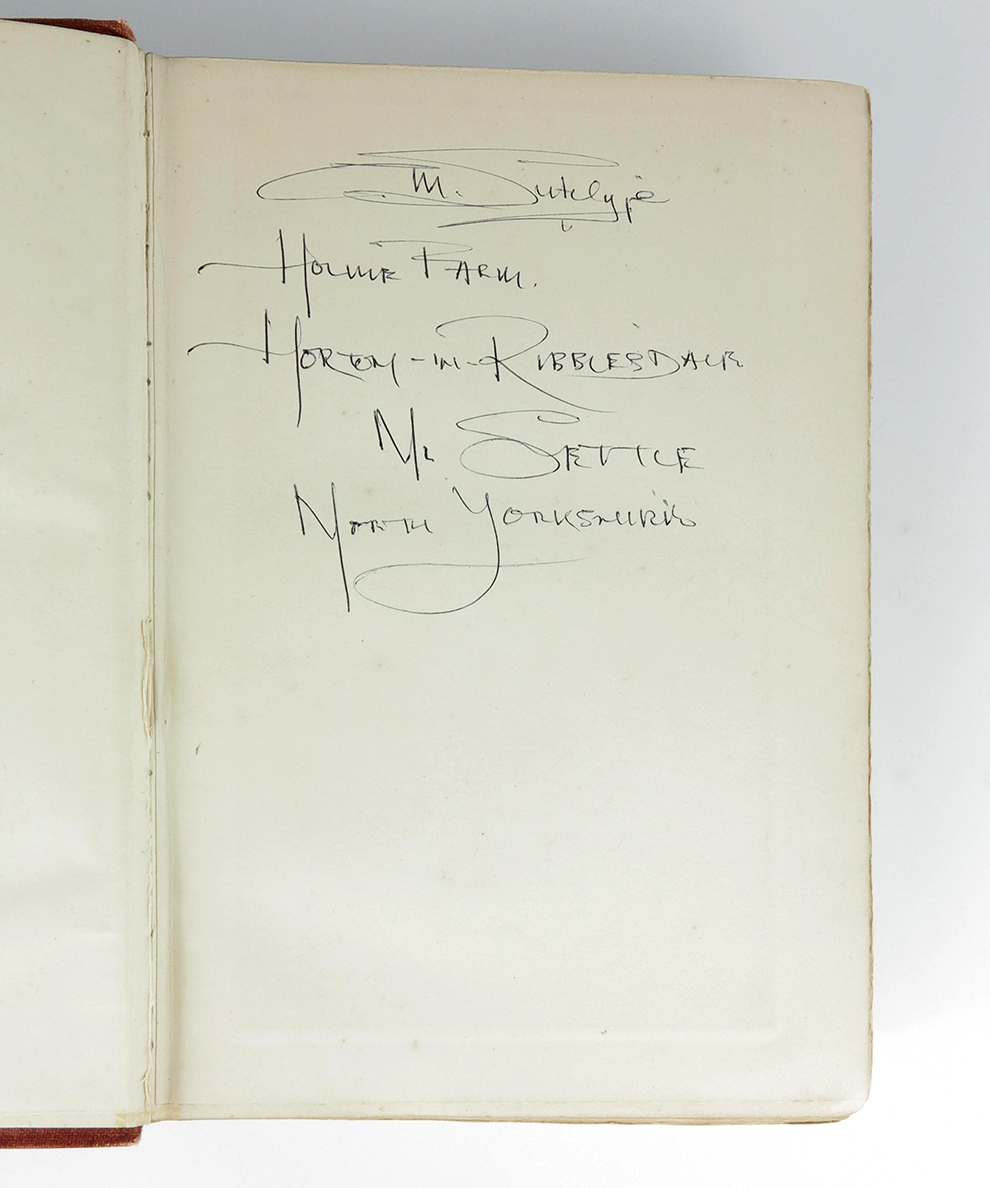 M. Sutclyffe
Holme Farm.
Horton-in-Ribblesdale
Nr Settle
North Yorkshire